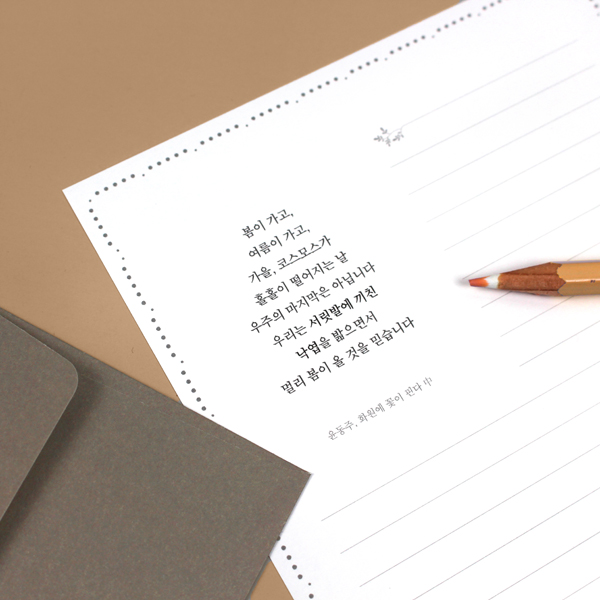 봄이 가고,
여름이 가고,
가을, 코스모스가
홀홀이 떨어지는 날
우주의 마지막은 아닙니다
우리는 서릿발에 끼친
낙엽을 밟으면서
멀리 봄이 올 것을 믿습니다
윤동주, 화원에 꽃이 핀다 中